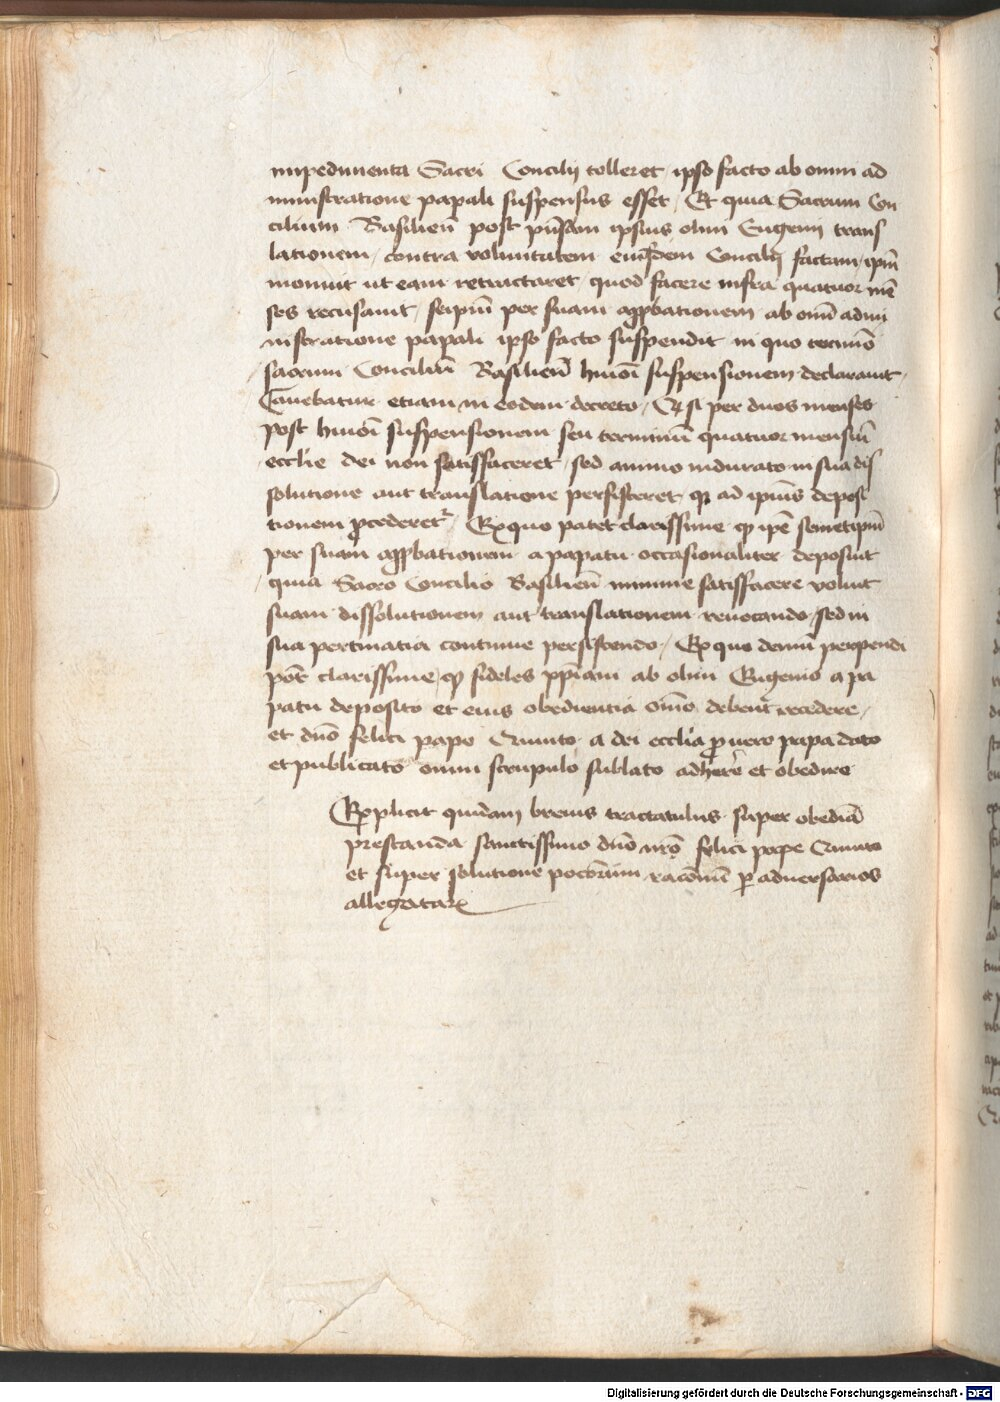 impedimenta Sacri Concilij tolleret ipso facto ab omni ad
ministratione papali suspensus esset / Et quia Sacrum Con
cilium Basilien̄ post pn̄tam ipsius olim Eugenij trans
lationem / contra voluntatem eiusdem Concilij factam / ipm̄
monuit ut eam retractaret / quod facere infra quatuor mē
ses recusauit / seipm̄ per suam approbationem ab om̄i admi
nistratione papali ipso facto suspendit in quo termīo
sacrum Conciliū Basilien̄ hm̄oi suspensionem declarauit /
Cauebatur etiam in eodem decreto / Qd si per duos menses
post hm̄oi suspensionem seu terminū quatuor mensiū
ecclie dei non satisfaceret / sed animo indurato in sua dis
solutione aut translatione persisteret qd ad ipius deposi
tionem procederetr / Ex quo patet clarissime qd ipē semetipm̄
per suam approbationem a papatu occasionaliter deposuit
quia Sacro Concilio Basilien̄ minime satisfacere voluit
suam dissolutionem aut translationem reuocando / sed in
sua pertinatia continue persistendo / Ex quo demū perpendi
pōt clarissime / qd fideles xp̄iani ab olim Eugenio a pa
patu deposito et eius obedientia om̄o debent recedere /
et dn̄o felici pape Quinto a dei ecclia pro vero papa dato
et publicato omni scrupulo sublato adherē et obedire
Explicit quidam breuis tractatulus super obediā
prestanda sanctissimo dn̄o nr̄o felici pape Quinto
et super solutione racōnū per aduersarios
allegatarꝫ